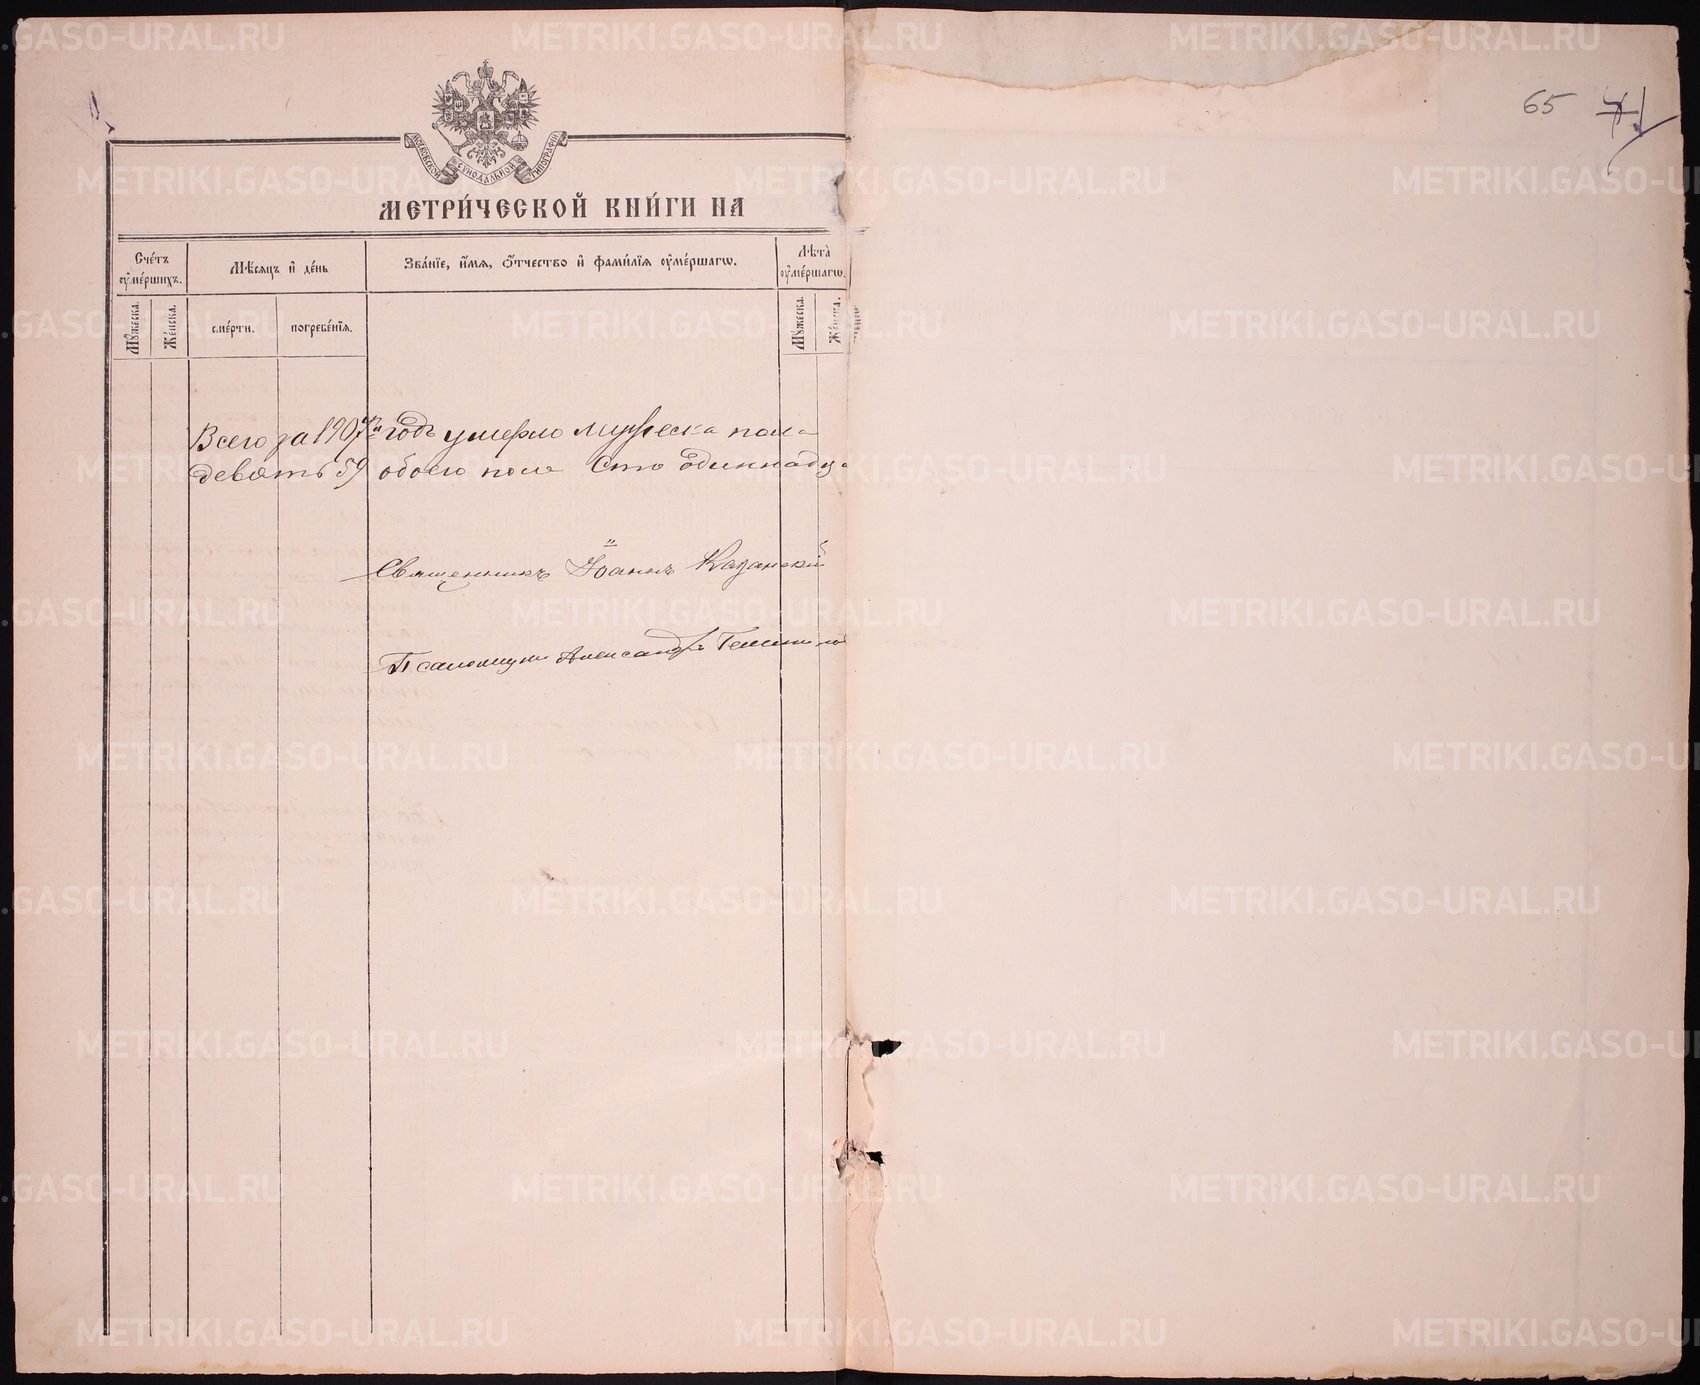 65 71
МОСКОВСКОЙ СѴНОДАЛЬНОЙ ТИПОГРАФІИ
МЕТРИ́ЧЕСКОЙ КНИ́ГИ НА
Сче́тъ ᲂу҆ме́ршихъ.
Мѣ́сяцъ и҆ де́нь
Зва́нїе, и҆́мя, ѻ҆́тчество и҆ фами́лїя ᲂу҆ме́ршагѡ.
Лѣта̀ ᲂу҆ме́ршагѡ.
Мꙋ́жеска.
Же́нска.
сме́рти.
погребе́нїя.
Мꙋ́жеска.
Же́нска.
Всего за 1907й годъ умерло мужеска пола
девять 59 обоего пола Сто одиннадца
Священникъ Іоаннъ Казанскій
Псаломщикъ Александръ
METRIKI.GASO-URAL.RU